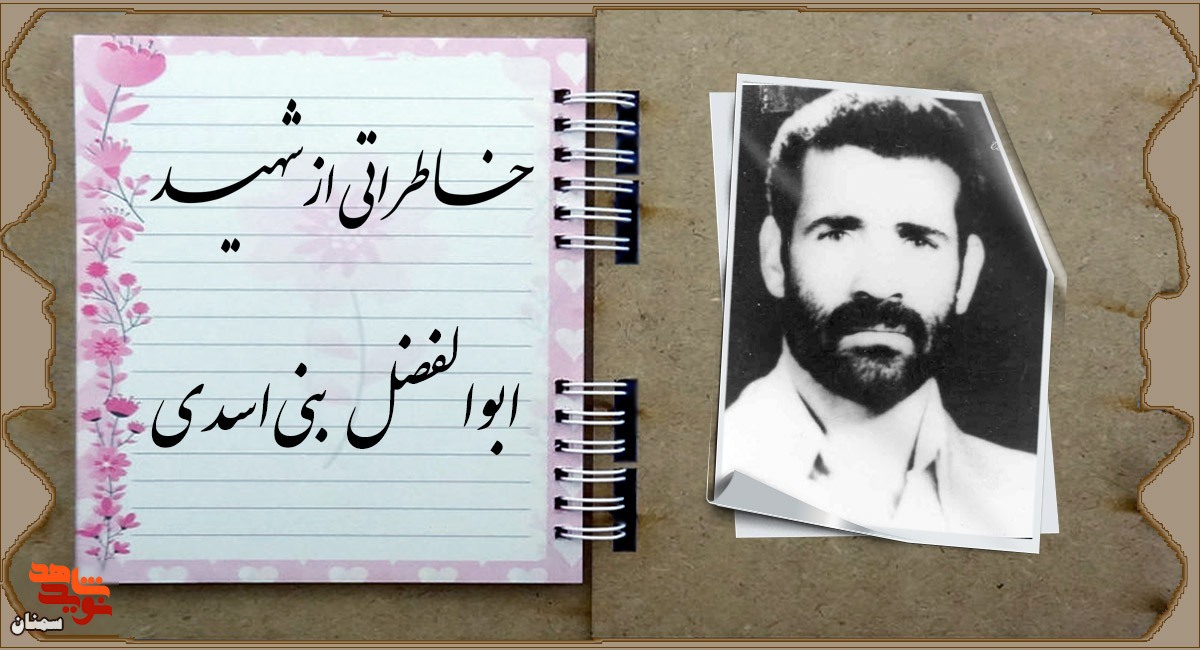 خاطراتی از شهید
ابوالفضل بنی اسدی
نوید شاهد
سمنان